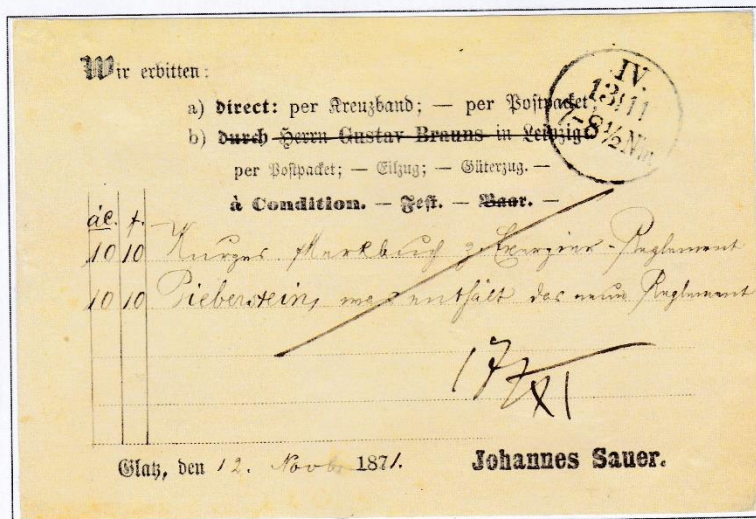 Wir erbitten:
a) direct: per Kreuzband; — per Postpacket;
b) durch Herrn Gustav Brauns in Leipzig:
per Postpacket; — Eilzug; — Güterzug. —
à Condition. — Fest. — Baar. —
IV.
13/11
7-8½ Nm
àC. f.
10 10 Kurzes Merkbuch z. Exerzier-Reglement
10 10 Pieberstein, was enthält das neue Reglement
17/XI
Glatz, den 12. Novb. 1871.
Johannes Sauer.